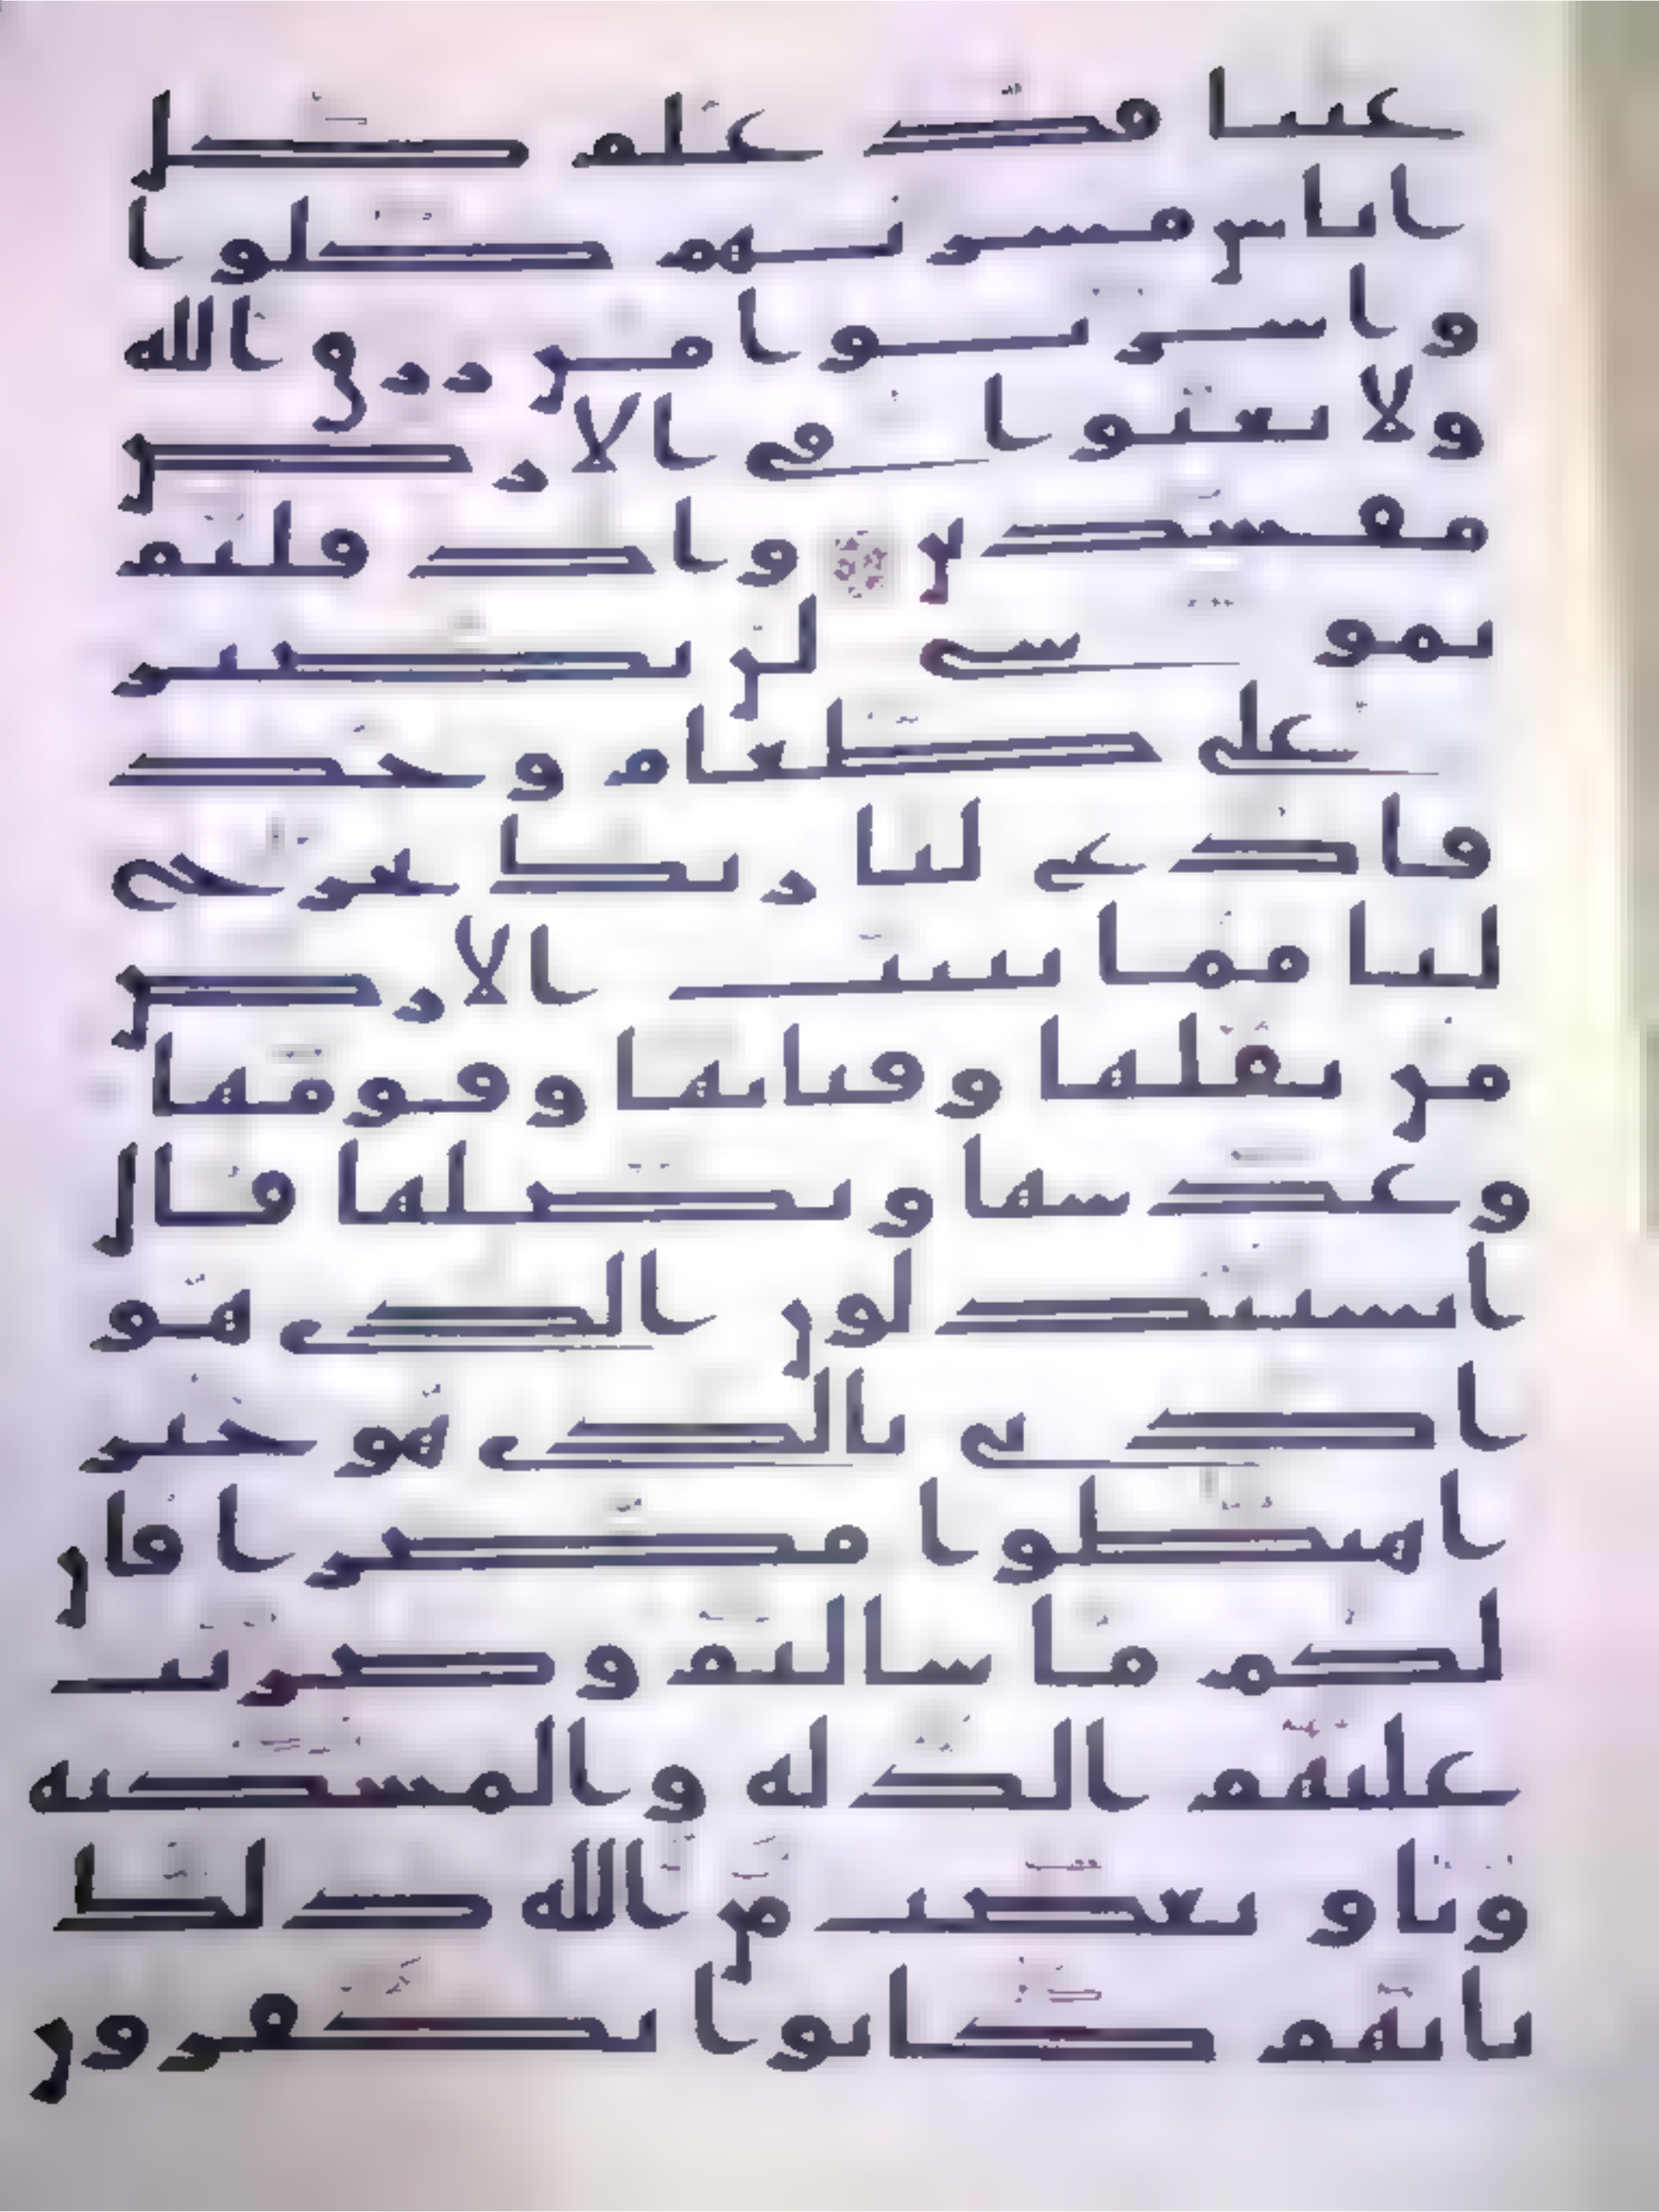 عينا قد علم كل
اناس مشربهم كلوا
واشربوا من رزق الله
ولا تعثوا في الارض
مفسدين واذ قلتم
يموسى لن نصبر
على طعام وحد
فادع لنا ربك يخرج
لنا مما تنبت الارض
من بقلها وقثائها وفومها
وعدسها وبصلها قال
اتستبدلون الذي هو
ادنى بالذي هو خير
اهبطوا مصرا فان
لكم ما سالتم وضربت
عليهم الذلة والمسكنة
وباو بغضب من الله ذلك
بانهم كانوا يكفرون